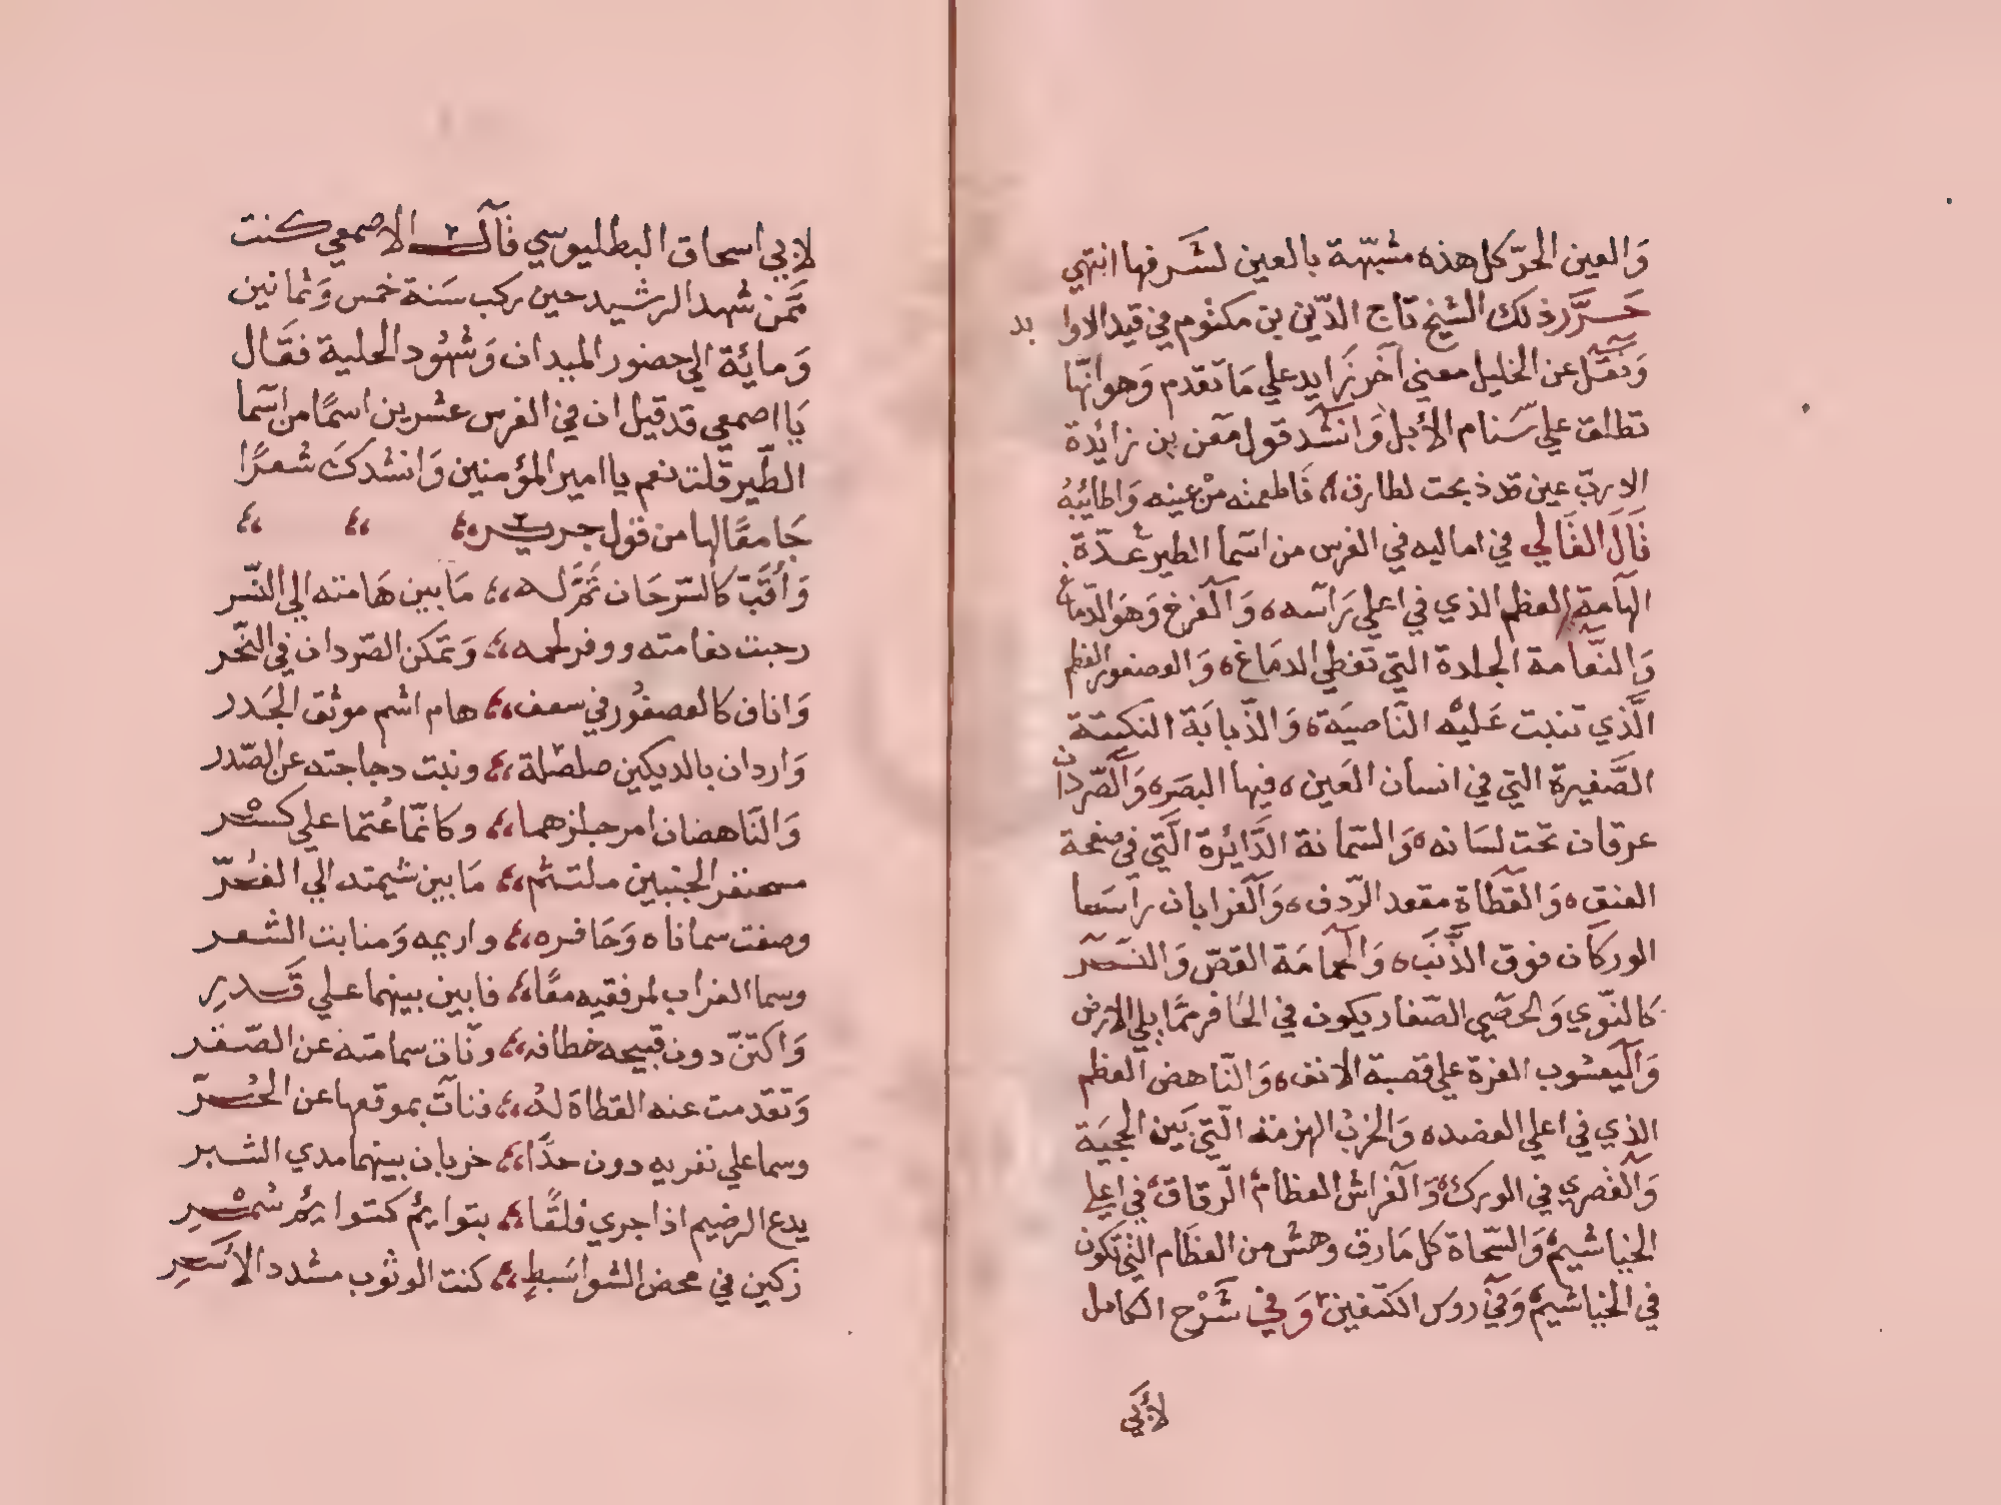 وَالعين الحرّ كل هذه مشبّهة بالعين لشَرفها انتهي
حَرَّر ذلك الشيخ تاج الدّين بن مكتوم في قيد الاوابد
وَنقَل عن الخليل معني آخر زَايد علي مَا تقدم وَهو انّها
تطلق علي سَنام الأبل وَانشَد قول معَن بن زائدة
الا ربّ عين قد ذبحت لطارق فَاطعمته من عينه وَاطائبهُ
قَالَ القَالي في اماليه في الفرس من اسَما الطير عدّة
الهَامة العظم الذي في اعلي رَاسه وَالفرخ وَهوَ الدّماغ
وَالنّعَامة الجلدة التي تغطي الدمَاغ وَالعصفور العظم
الَّذي تنبت عَليْه النَّاصيَة وَالذّبابَة النكتة
الصَّغيرة التي في انسان العَين فيها البصَر وَالصّردان
عرقان تحت لسَانه وَالسّمانة الدَّائرة الَّتي في صفحة
العنق وَالقَطاة مقعد الرّدف وَالغرابان رَاسَا
الوركَان فوق الذَّنَب وَالحمامَة القصّ وَالنسَر
كَالنّوي وَالحصَي الصّغار يكون في الحَافر ممَّا يلي الارض
وَاليَعسُوب الغرة علي قصبة الانف وَالنَّاهض العَظم
الذي في اعلي العضد وَالخربُ الهزمة الّتي بَين الحجبَة
وَالقصري في الورك وَالفَراش العظام الرّقاق في اعلي
الخياشيم وَالسّحاة كل مَا رق وهش من العظَام التي تكون
في الخياشيم وَفي روس الكتفين وَفي شَرْح الكامل
لأبي
لابي اسحاق البطليوسي قَالَ الاصمعي كنت
ممَّن شهد الرشيد حين ركب سَنة خمس وَثمانين
وَمائة الي حضور الميدان وَشهُود الحلبة فقَال
يَا اصمعي قد قيل ان في الفرس عشرين اسمًا من اسَما
الطَّير قلت نعم يا امير المؤمنين وَانشدكَ شعرًا
جَامعًا لها من قول جرير
وَأقَبّ كالسّرحَان تَمَّ لَه مَا بين هَامته الي النّسر
رحبت نعامته ووفر لحمه وَتمَكن الصّردان في النّحر
وَاناف كالعصفُور في سعف هام اشم موثق الجَدر
وَازدان بالديكين صلصَلة ونبت دجاجته عن الصّدر
وَالنَّاهضان امر جلزهما وكانّمَا عُثما علي كسْر
مسحنفر الجنبين ملتئم مَا بين شيمته الي الغُرّ
وصفت سماناه وَحَافره واديمه وَمنابت الشعر
وسما الغراب لمرفقيه معًا فابين بينهما علي قَدرِ
وَاكتنّ دون قبيحه خطافه ونَات سمامته عن الصّقر
وَتقدمت عنه القطاة لهُ فنات بموقعها عن الحُرّ
وسما علي نقريه دون حدَا خربان بينهما مدي الشبر
يدع الرضيم اذا جري فلقًا بتوايم كتوايم سْمرِ
ركبن في محض الشوا سَبط كفت الوثوب مشدد الأسَرِ